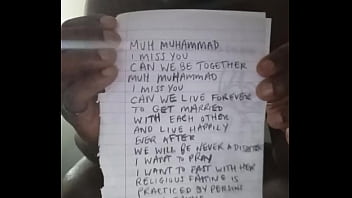 MUH MUHAMMAD
I MISS YOU
CAN WE BE TOGETHER
MUH MUHAMMAD
I MISS YOU
CAN WE LIVE FOREVER
TO GET MARRIED
WITH EACH OTHER
AND LIVE HAPPILY
EVER AFTER
WE WILL BE NEVER A
I WANT TO PRAY
I WANT TO FAST WITH HER
RELIGIOUS FASTING IS
PRACTICED BY PERSONS